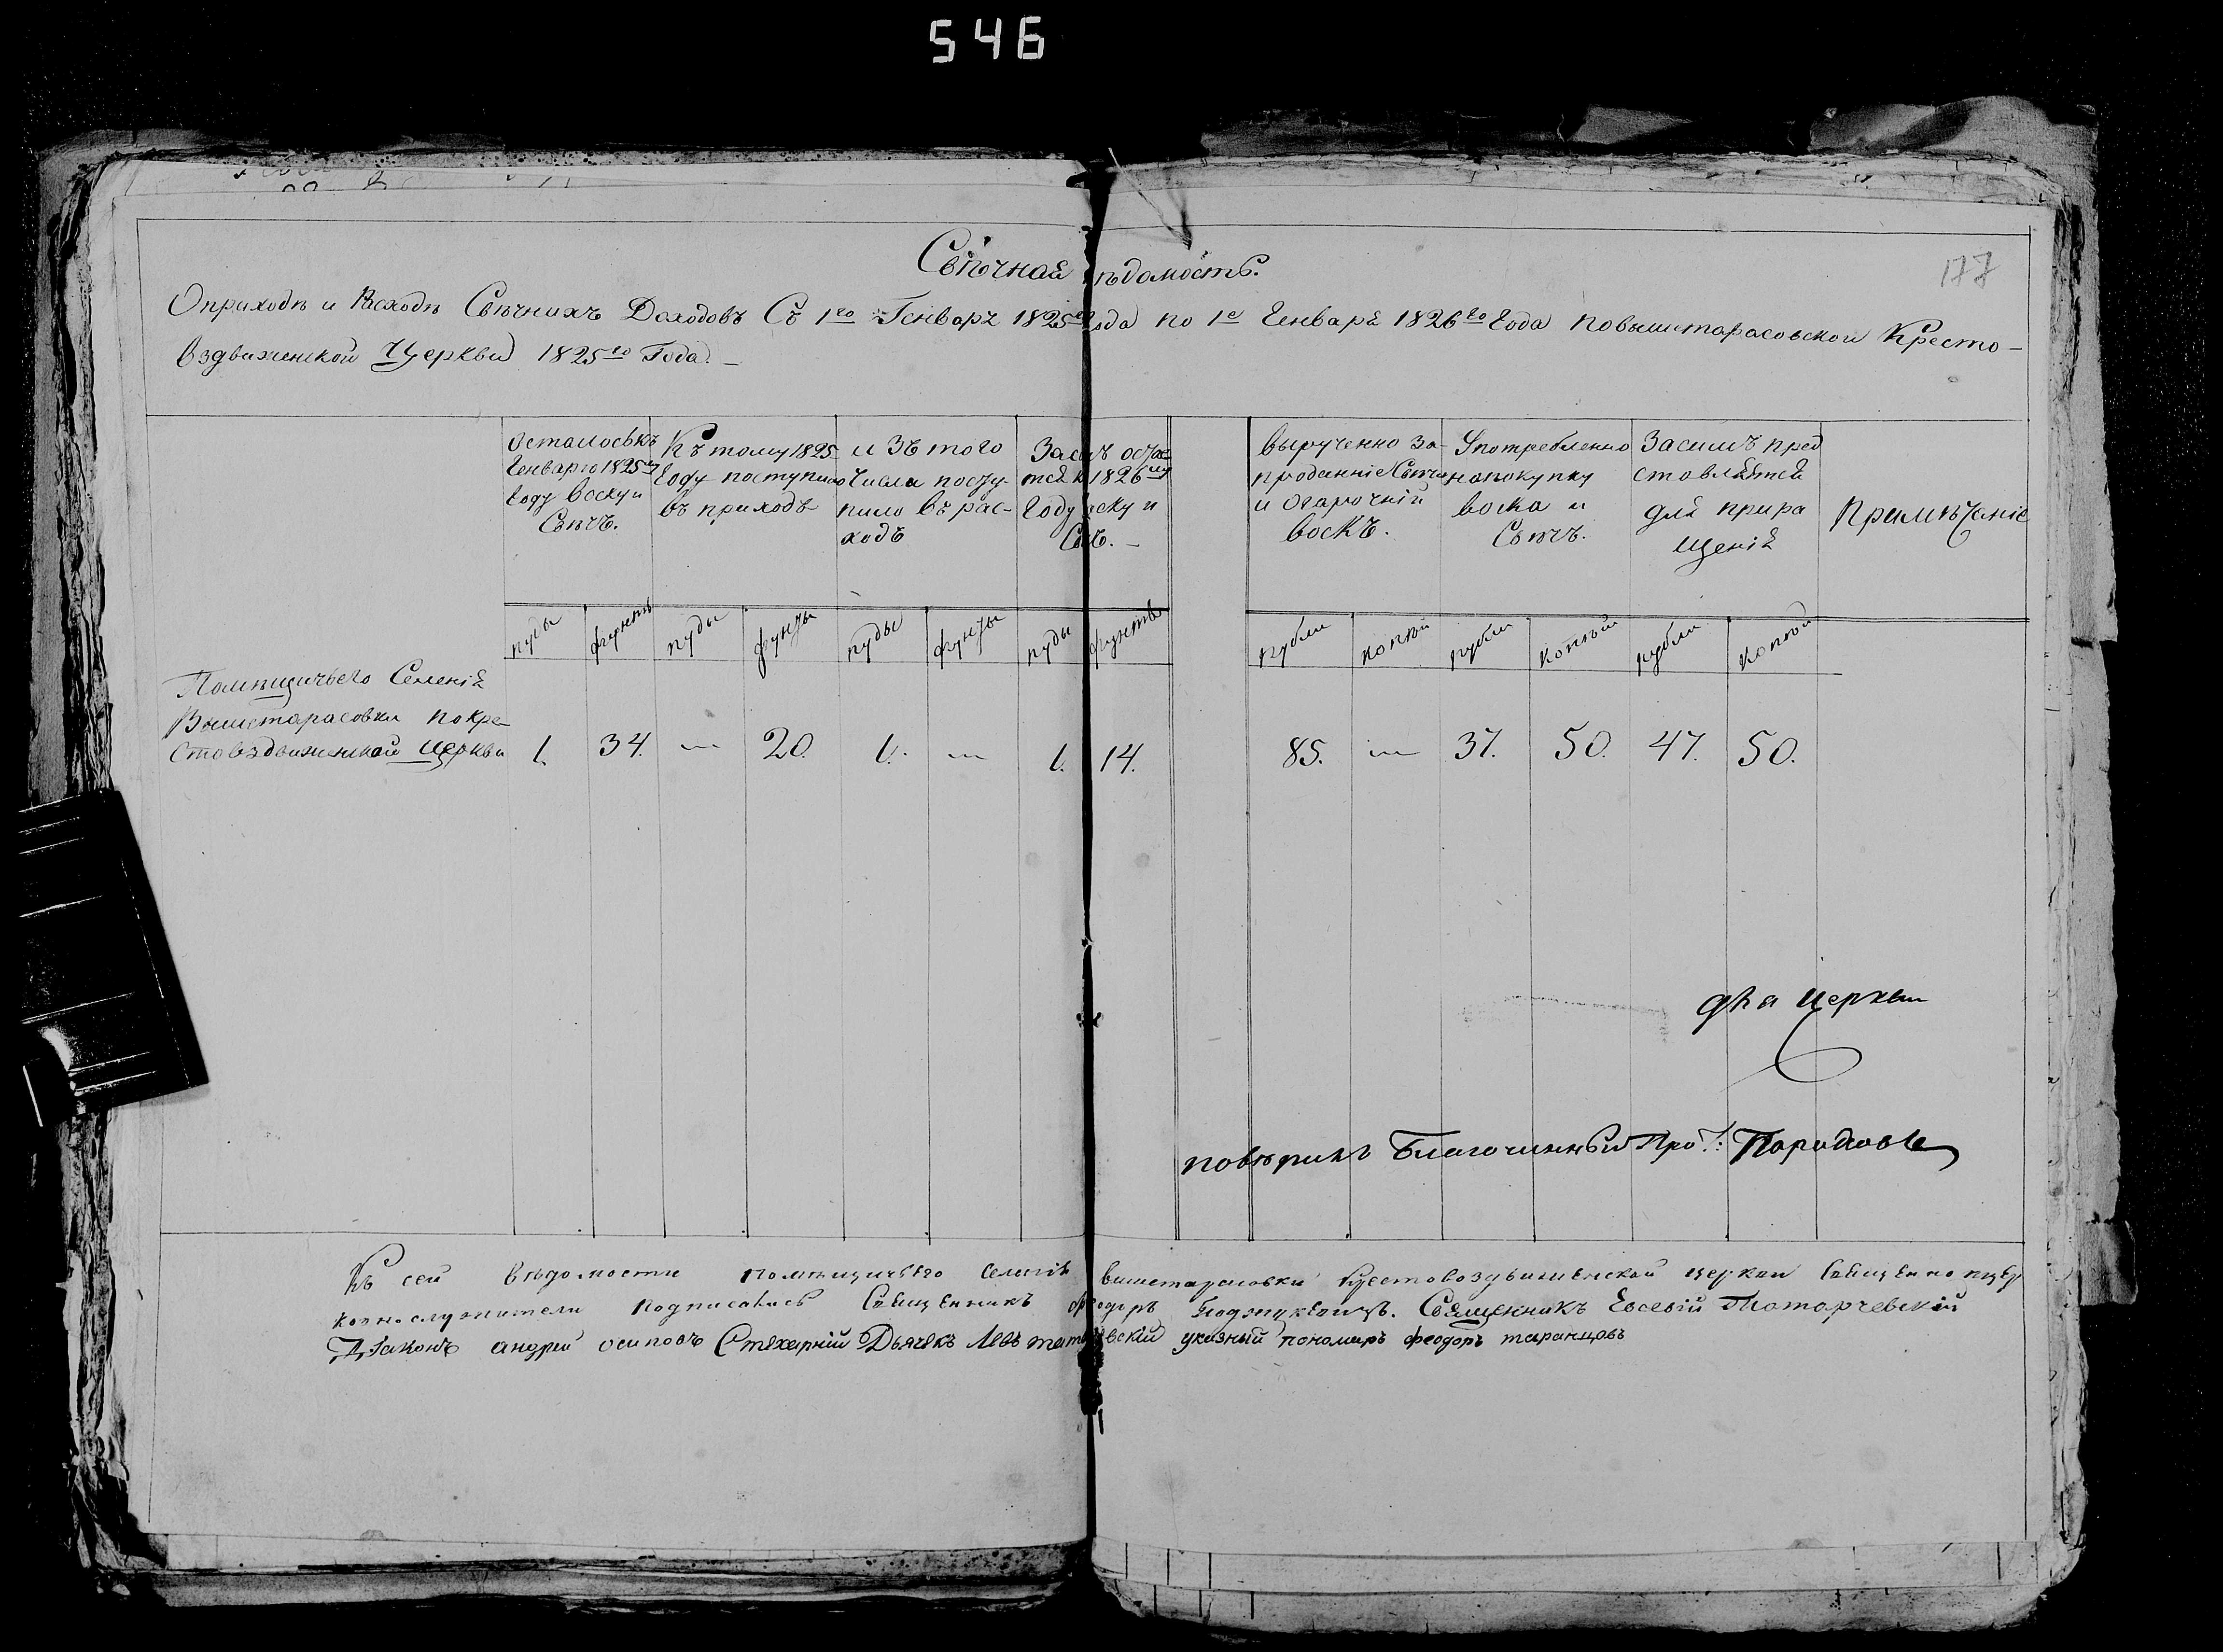 546
177
Свѣчная вѣдомость.
О приходѣ и Расходѣ Свѣчнихъ Доходовъ Съ 1го Генваря 1825го Года по 1е Генваря 1826го Года повышетарасовской Кресто-
вздвиженской Церкви 1825го Года. —
Осталось къ Генварю 1825му Году воску и Свѣчъ.
Къ тому 1825 Году поступило въ приходъ
и Зъ того Числа посту-пило въ рас-ходъ
Засимъ остае тся к 1826му Году воску и Свѣчъ. —
вырученно за-проданніе Свѣчи и огарочній воскъ.
Употребленно напокупку воска и Свѣчъ.
Засимъ пред ставляется для прира щенія
Примѣчаніе
пуды фунты пуды фунты пуды фунты пуды фунтъ рубли копѣй рубли копѣй рубли копѣй
Помѣщичьего Селенія
Вышетарасовки покре
стовздвиженской Церкви 1. 34. — 20. 1. — 1. 14. 85. — 37. 50. 47. 50.
два церкви
повѣрилъ Благочинный Прот:
Къ сей вѣдомости помѣщичьего селенія вишетарасовки Крестовоздвиженской церкви Священно и цер
ковнослужители подписались Священникъ Феодоръ Священникъ Евсевій
Діаконъ андрей осиповъ Стихарній Дьячекъ Левъ указный пономаръ феодоръ таранцовъ